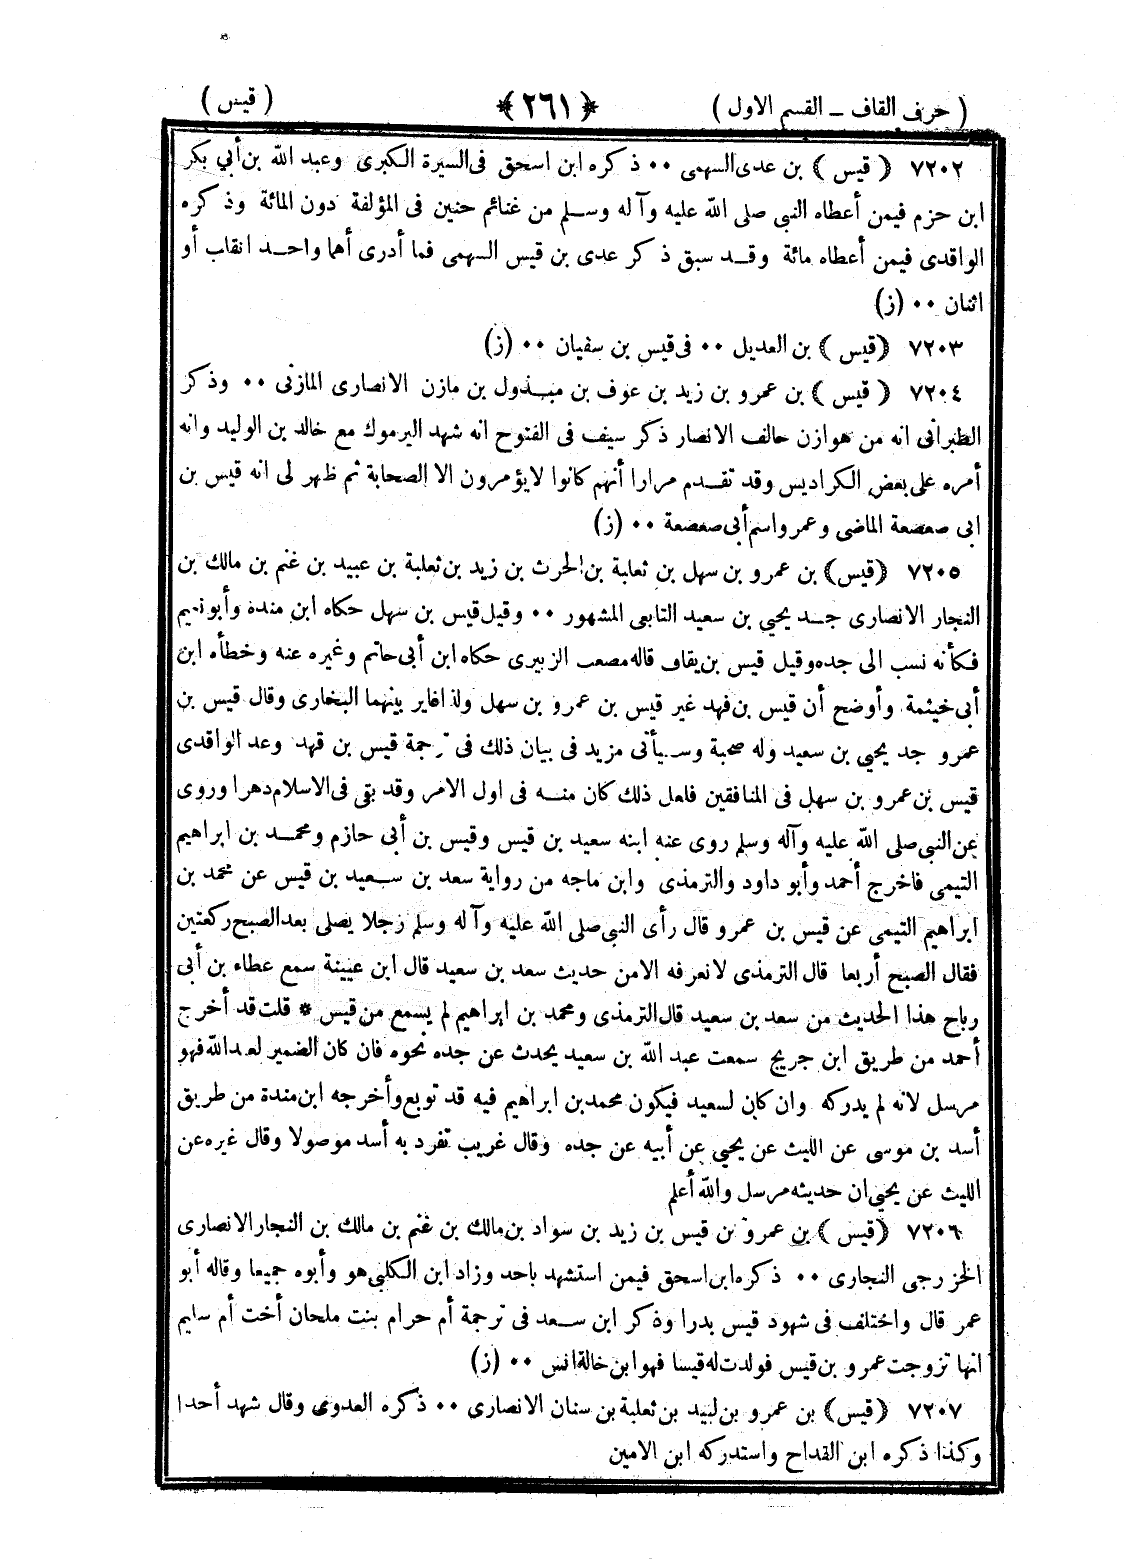 ( حرف القاف ــ القسم الاول ) ﴿ ٢٦١ ﴾ ( قيس )
٧٢٠٢ ( قيس ) بن عدى السهمى ٠٠ ذكره ابن اسحق فى السيرة الكبرى وعبد الله بن أبي بكر
ابن حزم فيمن أعطاه النبى صلى الله عليه وآله وسلم من غنائم حنين فى المؤلفة دون المائة وذكره
الواقدى فيمن أعطاه مائة وقد سبق ذكر عدى بن قيس السهمى فما أدرى أهما واحد انقلب أو
اثنان ٠٠ (ز)
٧٢٠٣ ( قيس ) بن العديل ٠٠ فى قيس بن سفيان ٠٠ (ز)
٧٢٠٤ ( قيس ) بن عمرو بن زيد بن عوف بن مبذول بن مازن الانصارى المازنى ٠٠ وذكر
الطبرانى انه من هوازن حالف الانصار ذكر سيف فى الفتوح انه شهد اليرموك مع خالد بن الوليد وانه
أمره على بعض الكراديس وقد تقدم مرارا أنهم كانوا لايؤمرون الا الصحابة ثم ظهر لى انه قيس بن
ابى صعصعة الماضى وعمرو اسم أبى صعصعة ٠٠ (ز)
٧٢٠٥ ( قيس ) بن عمرو بن سهل بن ثعلبة بن الحرث بن زيد بن ثعلبة بن عبيد بن غنم بن مالك بن
النجار الانصارى جد يحيى بن سعيد التابعى المشهور ٠٠ وقيل قيس بن سهل حكاه ابن مندة وأبو نعيم
فكأنه نسب الى جده وقيل قيس بن قاله مصعب الزبيرى حكاه ابن أبى حاتم وغيره عنه وخطأه ابن
أبى خيثمة وأوضح أن قيس بن فهد غير قيس بن عمرو بن سهل ولذا غاير بينهما البخارى وقال قيس بن
عمرو جد يحيى بن سعيد وله صحبة وسيأتى مزيد فى بيان ذلك فى ترجمة قيس بن قهد وعد الواقدى
قيس بن عمرو بن سهل فى المنافقين فلعل ذلك كان منه فى اول الامر وقد بقى فى الاسلام دهرا وروى
عن النبى صلى الله عليه وآله وسلم روى عنه ابنه سعيد بن قيس وقيس بن أبى حازم ومحمد بن ابراهيم
التيمى فاخرج أحمد وأبو داود والترمذى وابن ماجه من رواية سعد بن سعيد بن قيس عن محمد بن
ابراهيم التيمى عن قيس بن عمرو قال رأى النبى صلى الله عليه وآله وسلم رجلا يصلى بعد الصبح ركعتين
فقال الصبح أربعا قال الترمذى لا نعرفه الامن حديث سعد بن سعيد قال ابن عيينة سمع عطاء بن أبى
رباح هذا الحديث من سعد بن سعيد قال الترمذى ومحمد بن ابراهيم لم يسمع من قيس * قلت قد أخرج
أحمد من طريق ابن جريج سمعت عبد الله بن سعيد يحدث عن جده نحوه فان كان الضمير لعبد الله فهو
مرسل لانه لم يدركه وان كان لسعيد فيكون محمد بن ابراهيم فيه قد توبع وأخرجه ابن مندة من طريق
أسد بن موسى عن الليث عن يحيى عن أبيه عن جده وقال غريب تفرد به أسد موصولا وقال غيره عن
الليث عن يحيى ان حديثه مرسل والله أعلم
٧٢٠٦ ( قيس ) بن عمرو بن قيس بن زيد بن سواد بن مالك بن غنم بن مالك بن النجار الانصارى
الخزرجى النجارى ٠٠ ذكره ابن اسحق فيمن استشهد باحد وزاد ابن الكلبى هو وأبوه جميعا وقاله أبو
عمر قال واختلف فى شهود قيس بدرا وذكر ابن سعد فى ترجمة أم حرام بنت ملحان أخت أم سليم
انها تزوجت عمرو بن قيس فولدت له قيسا فهو ابن خالة انس ٠٠ (ز)
٧٢٠٧ ( قيس ) بن عمرو بن لبيد بن ثعلبة بن سنان الانصارى ٠٠ ذكره العدوى وقال شهد أحدا
وكذا ذكره ابن القداح واستدركه ابن الامين